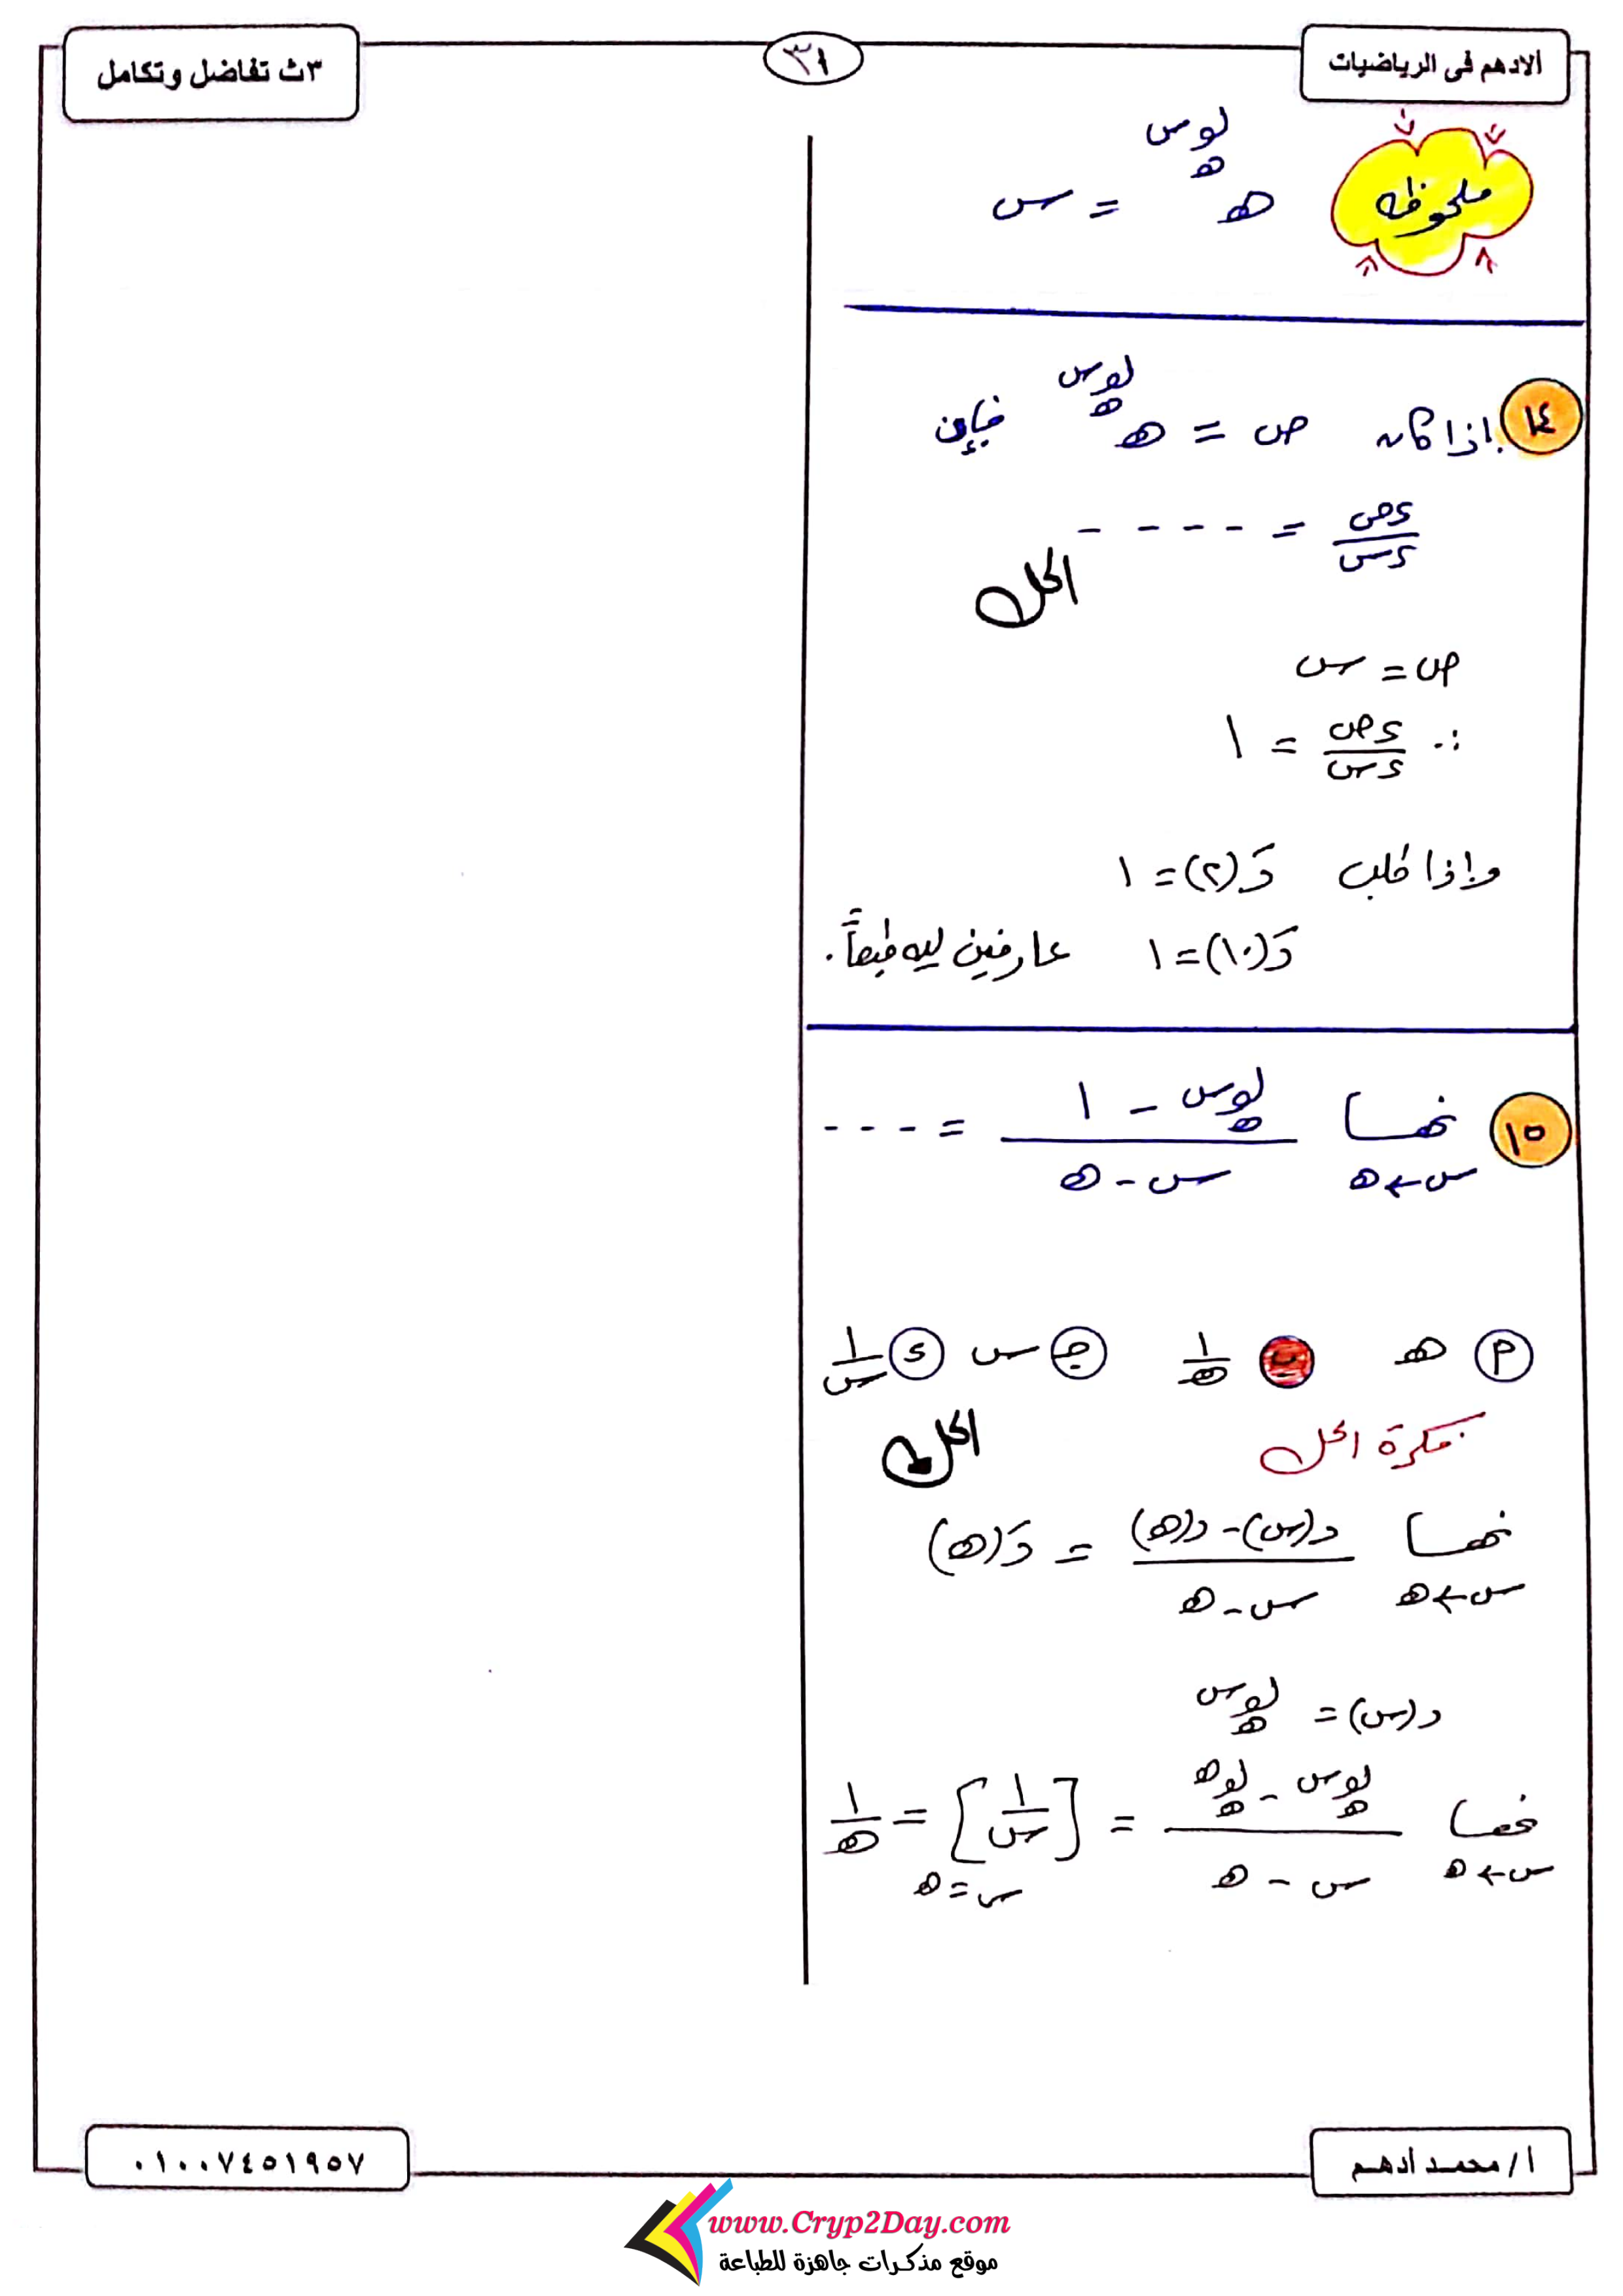 الادهم فى الرياضيات
٣١
٣ث تفاضل وتكامل
ملحوظه
هـ^(لو_هـ س) = س
١٤ إذا كان ص = هـ^(لو_هـ س) فإن
ءص/ءس = - - - -
الحل
ص = س
∴ ءص/ءس = ١
وإذا طلب دَ(٢) = ١
دَ(١٠) = ١ عارفين ليه طبعاً.
١٥ نهـــا س←هـ (لو_هـ س - ١)/(س - هـ) = - - -
أ هـ ب ١/هـ جـ س ء ١/س
فكرة الحل
الحل
نهـــا س←هـ (د(س) - د(هـ))/(س - هـ) = دَ(هـ)
د(س) = لو_هـ س
نهـــا س←هـ (لو_هـ س - لو_هـ هـ)/(س - هـ) = [١/س] س=هـ = ١/هـ
أ/ محمد أدهم
٠١٠٠٧٤٥١٩٥٧
www.Cryp2Day.com
موقع مذكرات جاهزة للطباعة